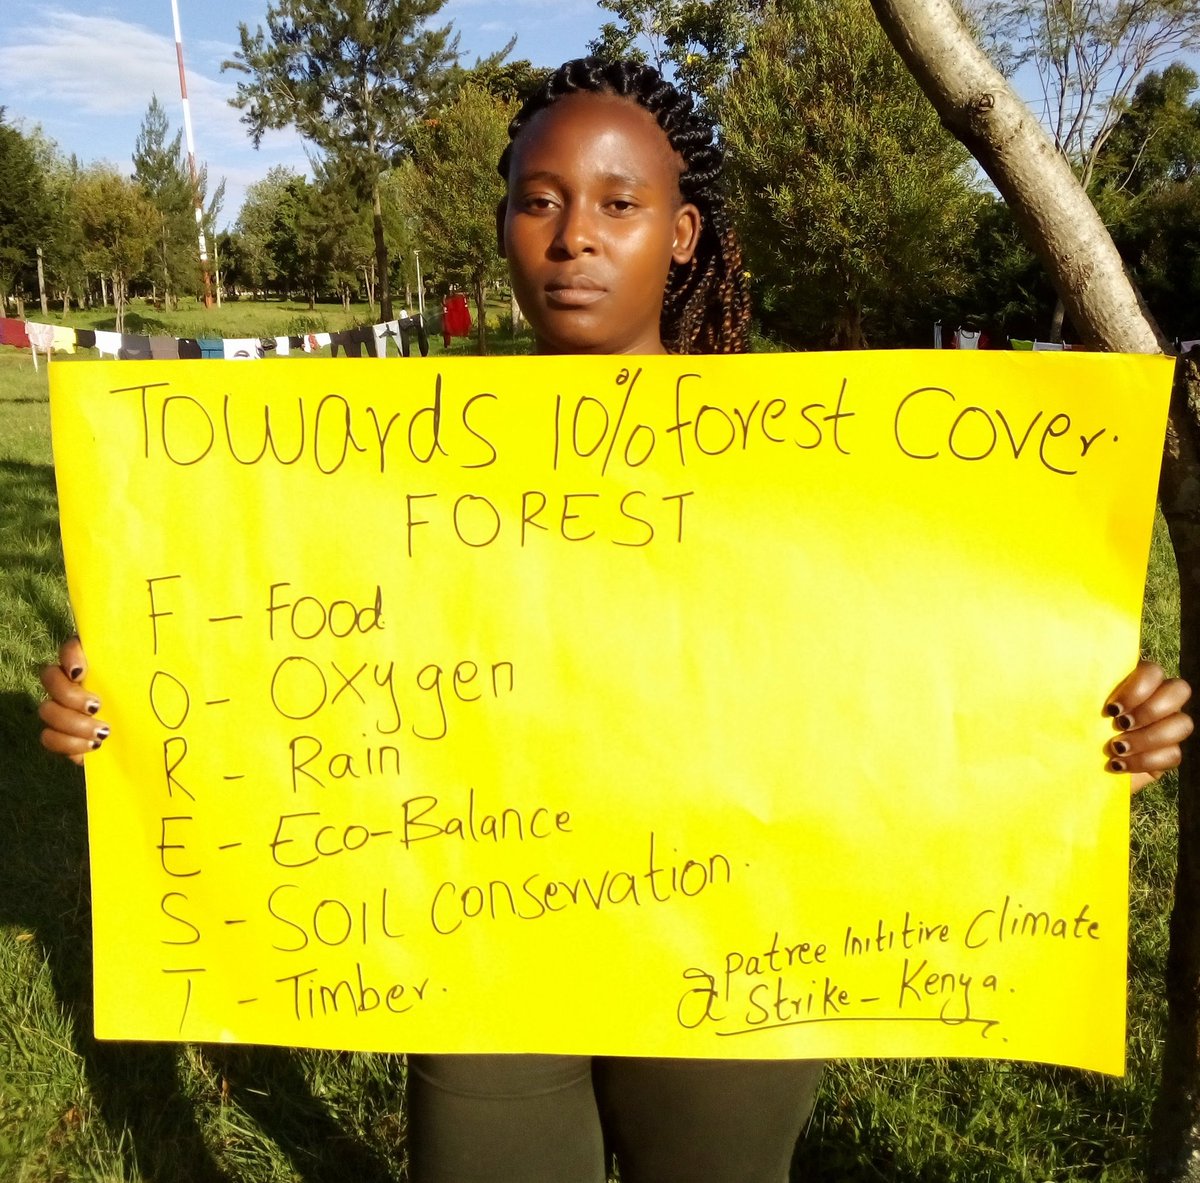 Towards 10% forest Cover.
FOREST
F - Food
O - Oxygen
R - Rain
E - Eco-Balance
S - SOIL Conservation.
T - Timber.
@ Patree Inititive Climate
Strike - Kenya.